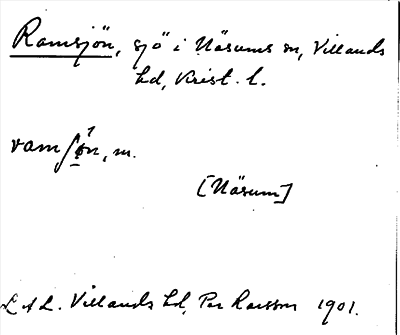 Ramsjön, sjö i Näsums sn, Villands
hd, Krist. l.
ramʃø̀n, m.
[Näsum]
L A L. Villands hd, Per Larsson 1901.